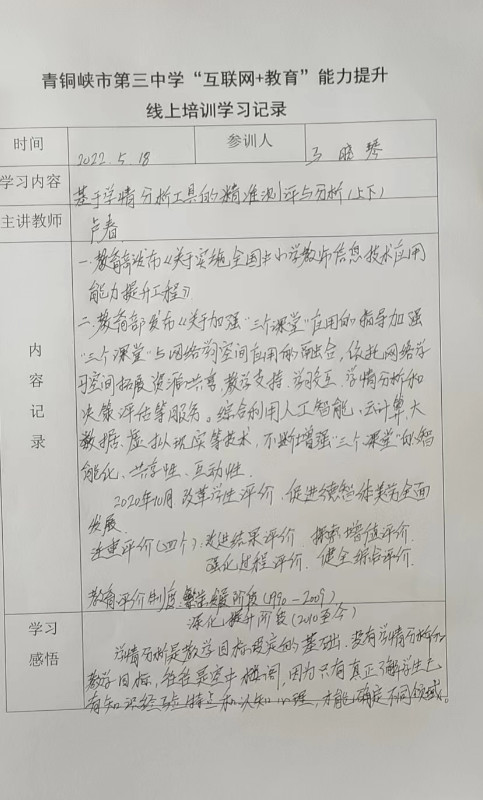 青铜峡市第三中学“互联网+教育”能力提升
线上培训学习记录
时间 2022.5.18 参训人 晓琴
学习内容 基于学情分析工具的精准测评与分析(上下)
主讲教师 卢春
内容记录
一.教育部发布《关于实施全国中小学教师信息技术应用
能力提升工程》
二.教育部发布《关于加强“三个课堂”应用的指导加强
“三个课堂”与网络学习空间应用的融合,依托网络学
习空间拓展资源共享、教学支持、学习交互、学情分析和
决策评估等服务。综合利用人工智能、云计算、大
数据、虚拟现实等技术,不断增强“三个课堂”的智
能化、共享性、互动性.
2020年10月 改革学生评价.促进德智体美劳全面
发展.
注重评价(四个):改进结果评价 探索增值评价.
强化过程评价. 健全综合评价.
教育评价制度 繁荣发展阶段(1990-2009)
深化提升阶段(2010至今)
学习感悟
学情分析是教学目标设定的基础,没有学情分析的
教学目标,往往是空中楼阁,因为只有真正了解学生已
有知识经验特点和认知心理,才能确定不同领域。